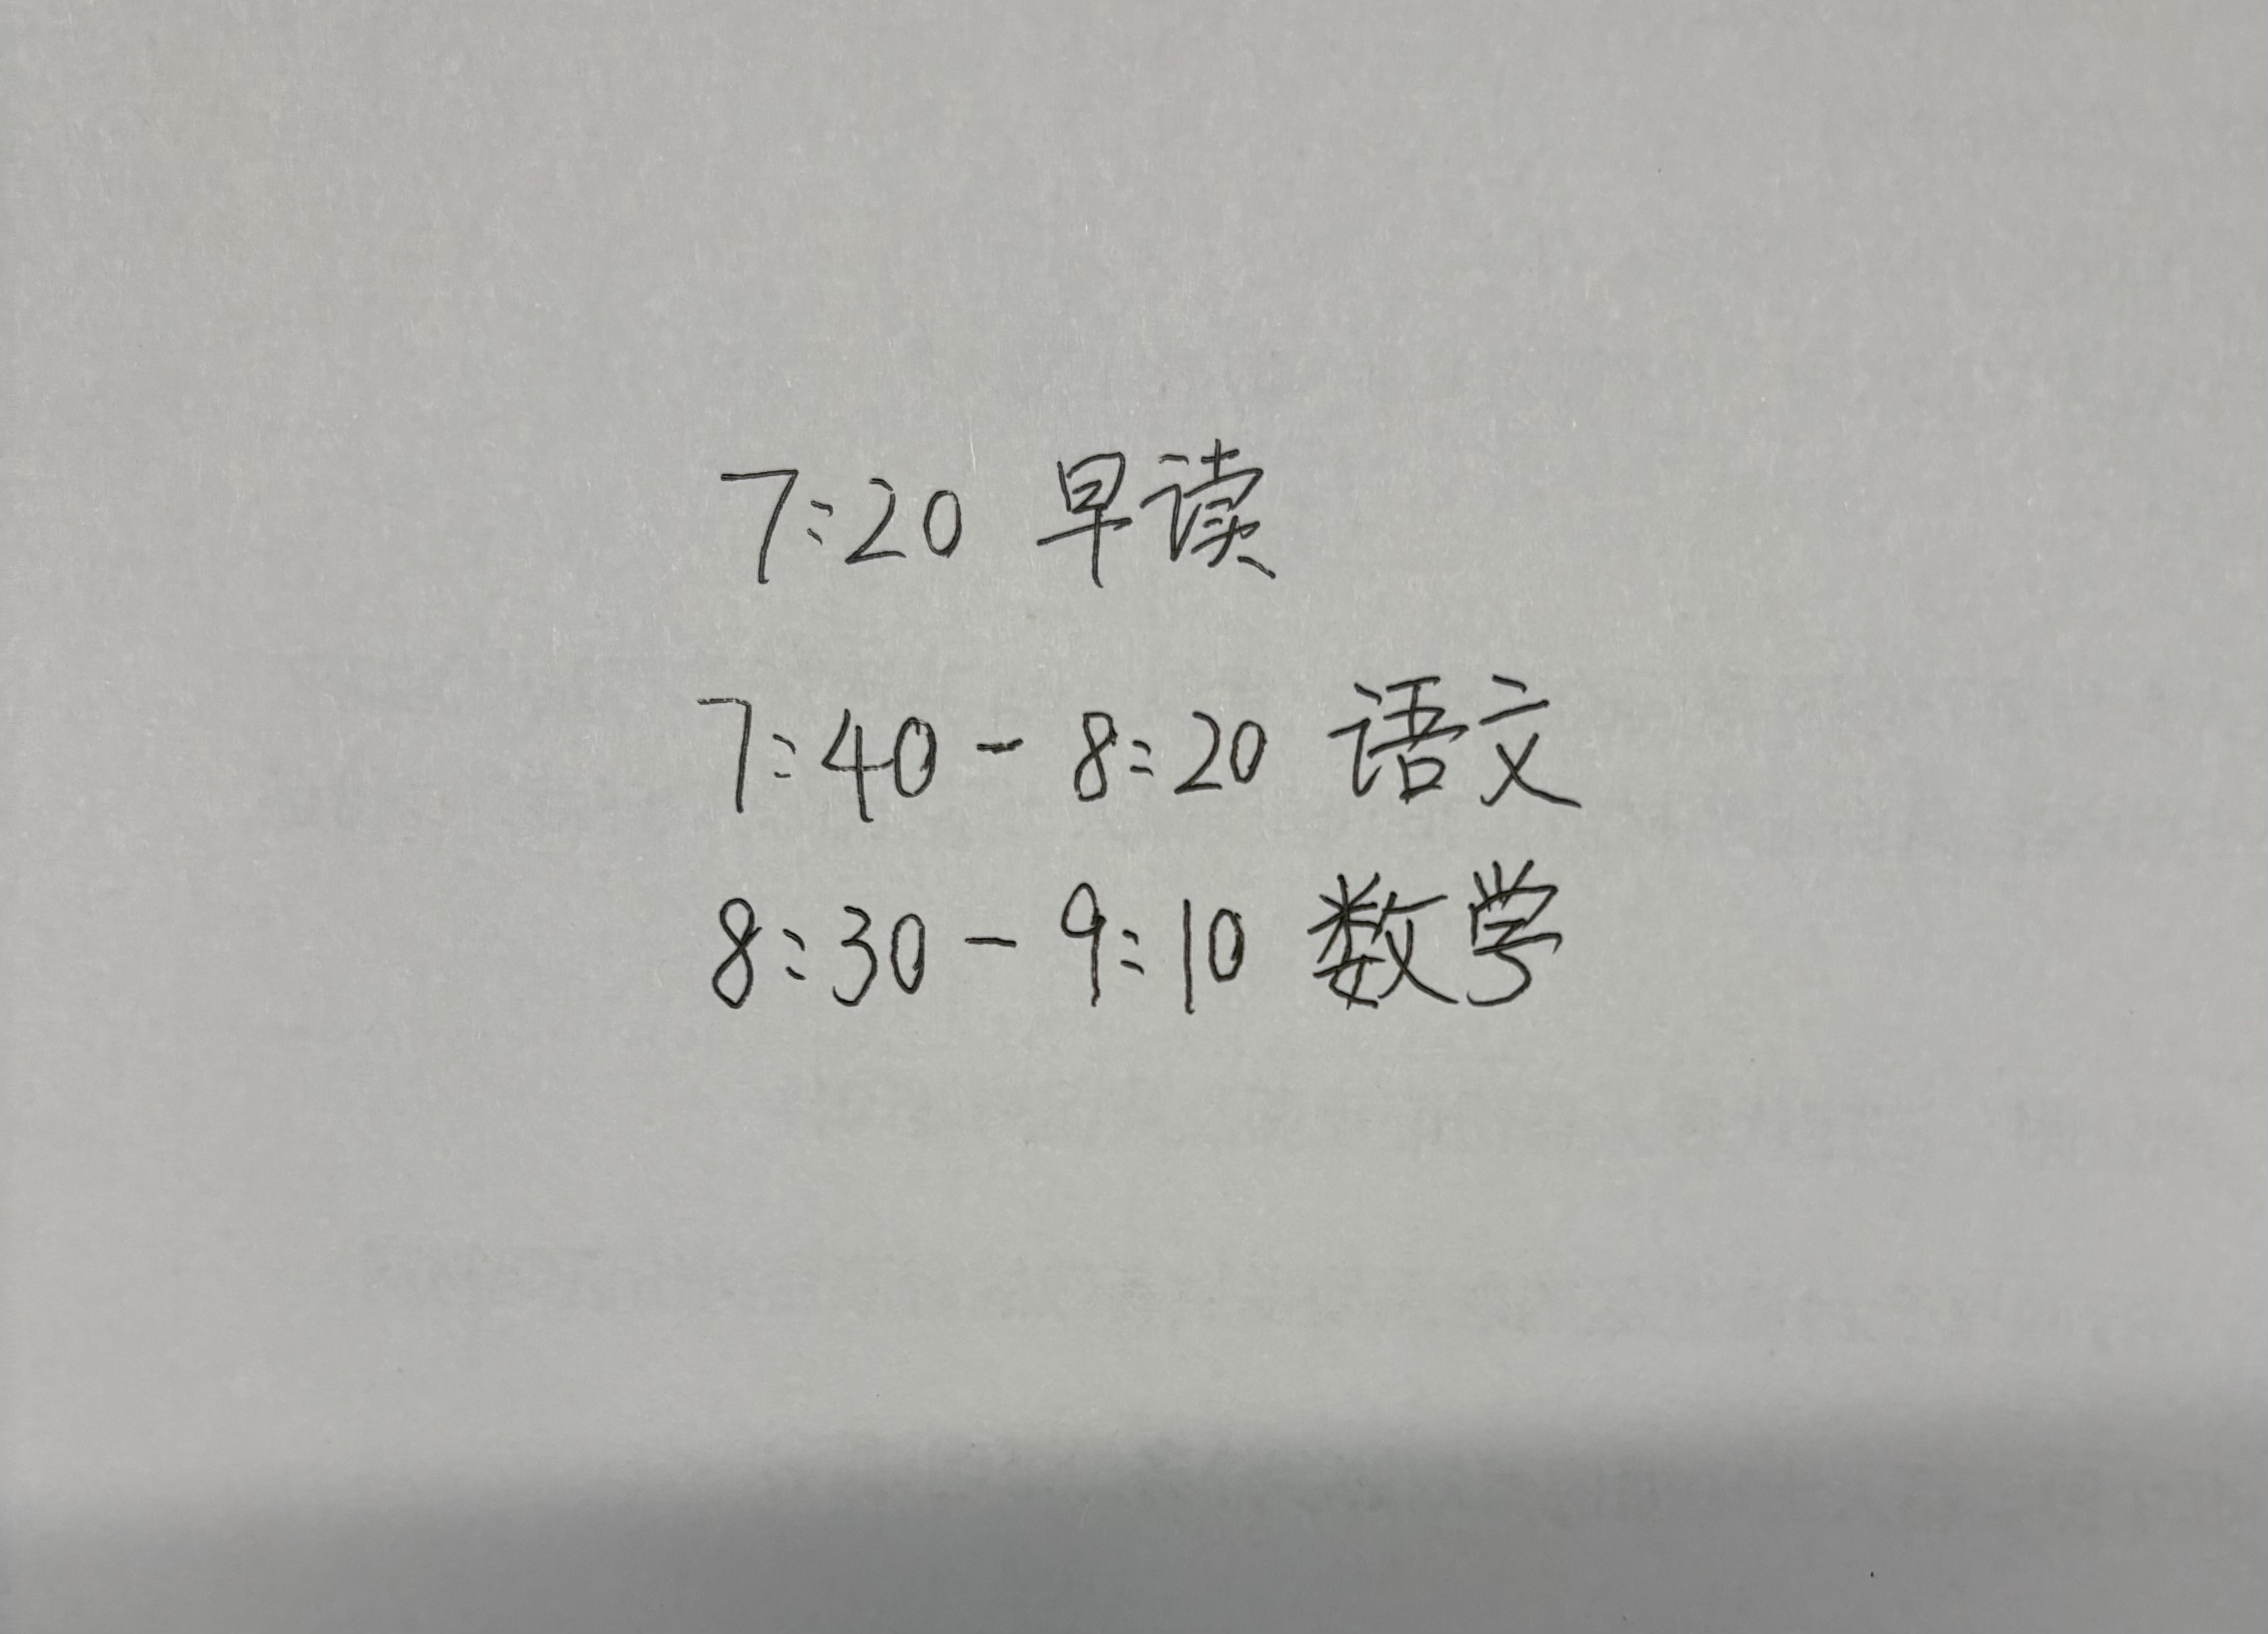 7:20 早读
7:40 - 8:20 语文
8:30 - 9:10 数学